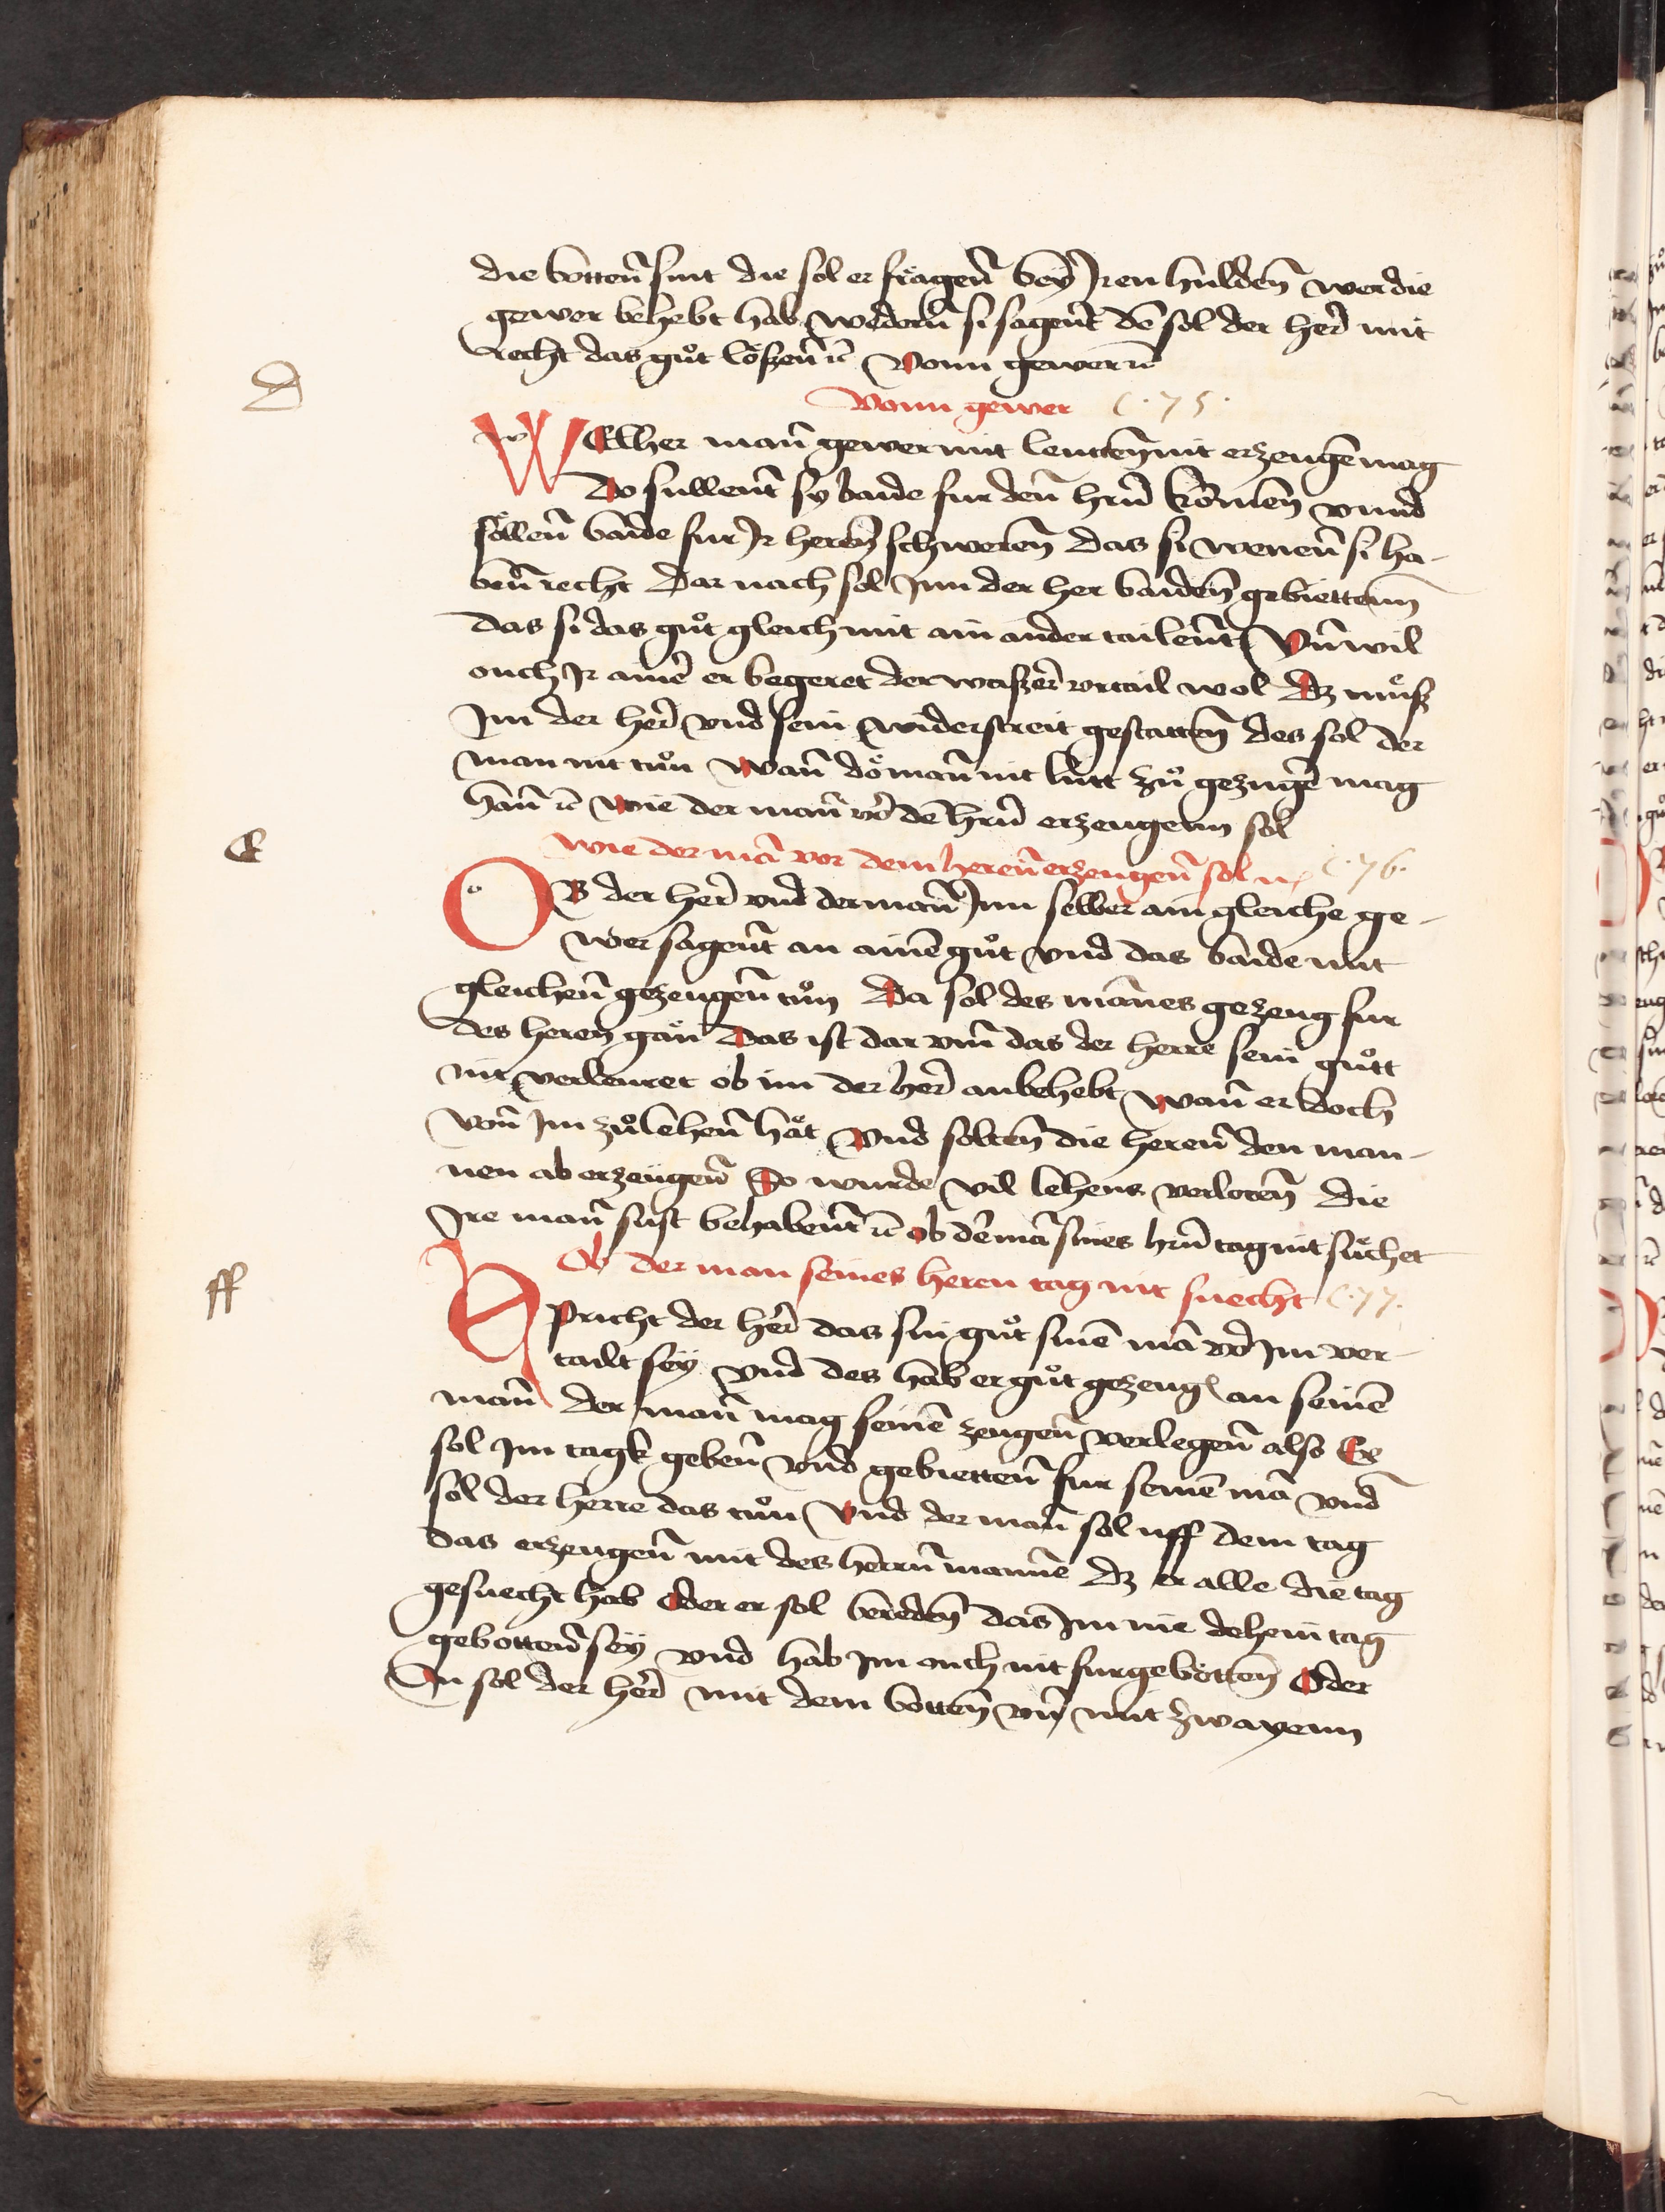 die bottenn̄ sint die sol er frägenn̄ beÿ Jren huldenn̄ wer die
gewer behebt hab wedernn̄ si sagent de sol der her̄ mit
recht das guͦt loͤßenn̄ ꝛc̄ Vonn gewer ꝛc̄
D
Vonn gewer C · 75 ·
WElher man̄ gewer mit leuttenn̄ nit erzeugen̄ mag
Do sullent sy baide fur den̄ hrn̄ komen̄ vnnd
söllenn̄ baide fur Jr herrn̄ schweren̄ das si wenen̄ si ha-
ben̄ recht Dar nach sol Jnn der her baiden̄ gebiettenn
das si das guͦt gleich mit ain ander tailent Vn̄ wil
ouch Jr ainer er begeret der waßer vrtail wol dz muͦß
Jm der her̄ vnd sein widerstreit gestatten̄ des sol der
man nit tuͦn Wan̄ do man̄ nit lütt zuͦ gezuge mag
han̄ ꝛc̄ Wie der man̄ vor de hrn̄ erzeugenn sol
E
Wie der mā vor dem heren̄ erzeugen̄ sol ꝛc̄ C · 76 ·
OB der her̄ vnd der man̄ Jnn selber ain gleiche ge-
wer sagent an ainē guͦt vnd das baide mit
gleichen̄ gezeugen̄ tuͦn Da sol des mānes gezeug fur
des heren gän Das ist dar vm̄ das der herre sein guͦtt
nit verleuret ob im der her̄ anbehebt Wan̄ er doch
von̄ Jm zuͦ lehen̄ hät Vnd solten̄ die heren̄ den man-
nen ab erzeügen̄ So wurde vil lehens verloren̄ Die
Jre man̄ sust behabent ꝛc̄ Ob der mā sines hrn̄ tag nit suͤchet
ff
Ob der man seines heren tag nit suecht C · 77 ·
SPricht der her̄ das sin guͦt sinē mā vor Jm ver-
tailt seÿ vnd des hab er guͦt gezeug an seinē
man̄ Der man̄ mag seinē zeugen̄ verlegen̄ also Er
sol Jm tagk geben̄ vnd gebietten̄ fur seinen mā vnd
sol der herre das tuͦn Vnd der man̄ sol uff dem tag
das erzeugen̄ mit des herrn̄ mannē dz er alle die tag
gesuecht hab Oder er sol bereden̄ das Jm nie dehein tag
gebotten̄ seÿ vnd hab Jm ouch nit furgebotten̄ Oder
In sol der her̄ mit dem botten̄ vn̄ mit zwayenn